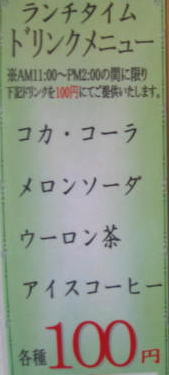 ランチタイム
ドリンクメニュー
※AM11:00～PM2:00の間に限り
下記ドリンクを100円にてご提供いたします。
コカ・コーラ
メロンソーダ
ウーロン茶
アイスコーヒー
各種100円